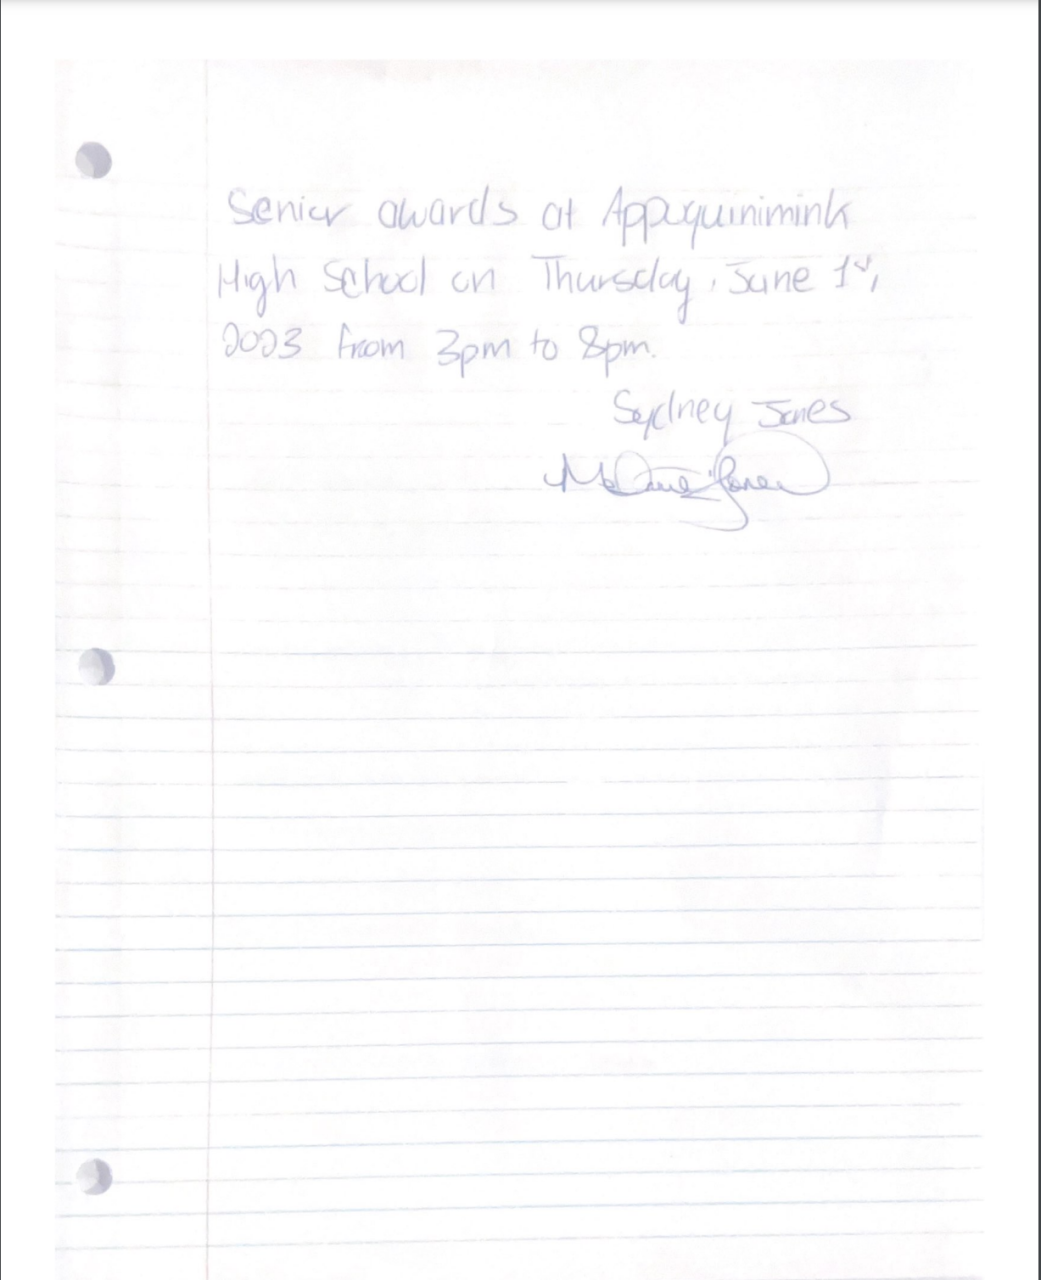 Senior awards at Appoquinimink
High School on Thursday, June 1st,
2023 from 3pm to 8pm.
Sydney Jones
Jones